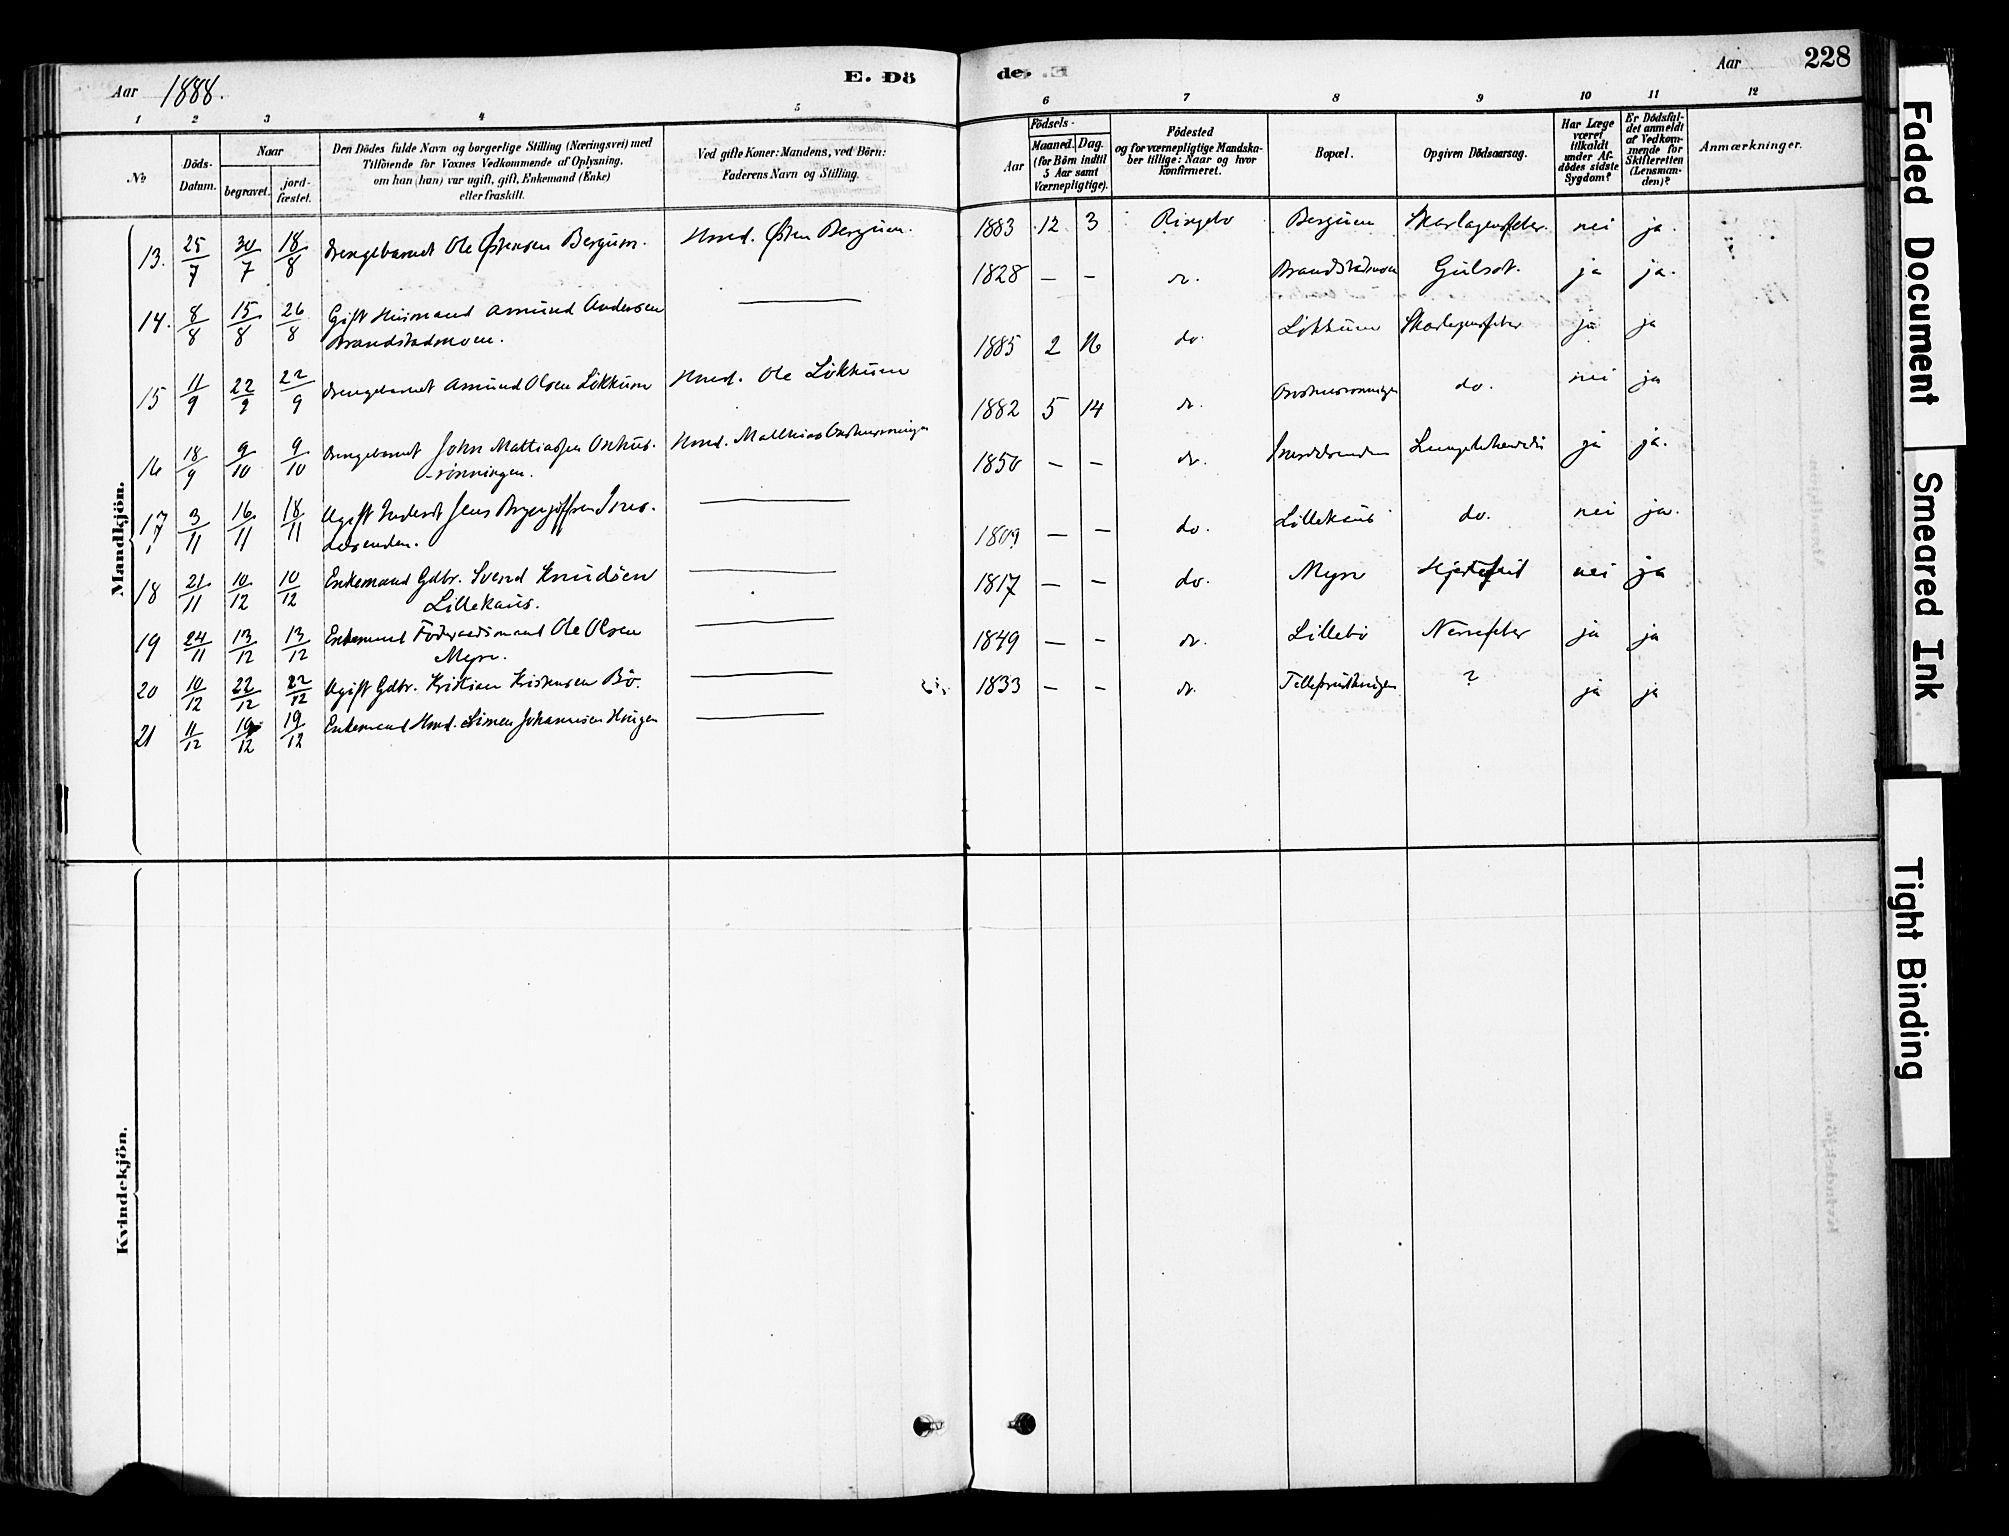 Aar 1888.
E. Dö
de.
Aar
228
1 2 3 4 5 6 7 8 9 10 11 12
№
Döds-
Datum.
Naar
begravet.
jord-
fæstet.
Den Dödes fulde Navn og borgerlige Stilling (Næringsvei) med
Tilföiende for Voxnes Vedkommende af Oplysning,
om han (hun) var ugift, gift, Enkemand (Enke)
eller fraskilt.
Ved gifte Koner: Mandens, ved Börn:
Faderens Navn og Stilling.
Födsels-
Aar
Maaned. Dag.
(for Börn indtil
5 Aar samt
Værnepligtige).
Födested
og for værnepligtige Mandska-
ber tillige: Naar og hvor
konfirmeret.
Bopæl.
Opgiven Dödsaarsag.
Har Læge
været
tilkaldt
under Af-
dödes sidste
Sygdom?
Er Dödsfal-
det anmeldt
af Vedkom-
mende for
Skifteretten
(Lensman-
den)?
Anmærkninger.
Mandkjön.
13. 25/7 30/7 18/8 Drengebarnet Ole Østensen Bergum. Hmd. Østen Bergum. 1883 12 3 Ringebo Bergum Skarlagensfeber. nei ja.
14. 8/8 15/8 26/8 Gift Husmand Amund Andersen
Brandstadmoen. — 1828 — — do. Brandstadmoen Gulsot. ja ja.
15 11/9 22/9 22/9 Drengebarnet Amund Olsen Løkkum Hmd. Ole Løkkum 1885 2 16 do. Løkkum Skarlagensfeber ja ja
16 18/9 9/10 9/10 Drengebarnet John Mattiassen Onhus-
rønningen. Hmd. Matthias Onshusrønningen 1882 5 14 do. Onshusrønningen do. nei ja
17 3/11 16/11 18/11 Ugift Inderst Jens — 1850 — — do. ja ja.
18 21/11 10/12 10/12 Enkemand Gdbr. Svend Knudsen
Lillekaus. — 1809 — — do. Lillekaus do. nei ja.
19 24/11 13/12 13/12 Enkemand Føderaadsmand Ole Olsen
Myre. — 1817 — — do. Myre Hjertefeil nei ja
20 10/12 22/12 22/12 Ugift Gdbr. Kristian Kristensen Bö. — 1849 — — do. Lillebö Nervefeber ja ja
21 11/12 19/12 19/12 Enkemand Hmd. Simen Johannesen Haugen — 1833 — — do. ? ja ja
Kvindekjön.
Faded Document
Smeared Ink
Tight Binding